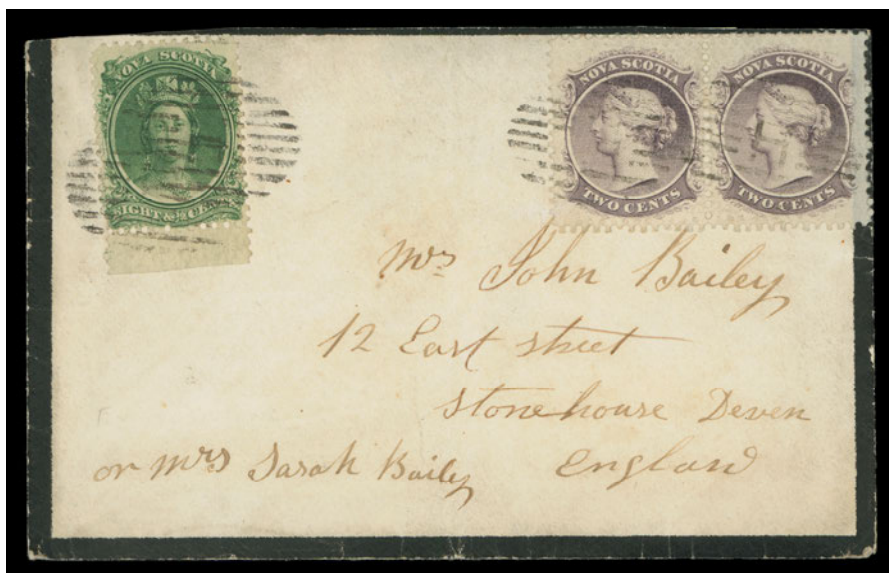 NOVA SCOTIA
EIGHT & ½ CENTS
NOVA SCOTIA
TWO CENTS
NOVA SCOTIA
TWO CENTS
Mrs John Bailey
12 East street
Stonehouse Deven
England
or Mrs Sarah Baily